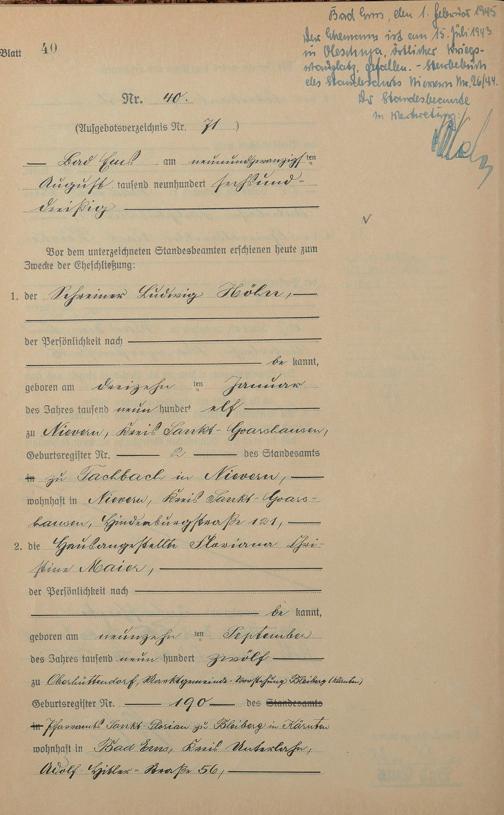 Bad Ems, den 1. Februar 1945
Der Ehemann ist am 15. Juli 1943
in Oleschnja, örtlicher Kriegs-
gefallen. - Sterbebuch
des Standesamts Nievern Nr. 26/44.
Der Standesbeamte
In Vertretung:
Blatt 40
Nr. 40.
(Aufgebotsverzeichnis Nr. 71)
Bad Ems am neunundzwanzigsten
August tausend neunhundert sechsund-
dreißig
Vor dem unterzeichneten Standesbeamten erschienen heute zum
Zwecke der Eheschließung:
1. der Schreiner Ludwig
der Persönlichkeit nach
be kannt,
geboren am dreizehnten Januar
des Jahres tausend neun hundert elf
zu Nievern, Kreis Sankt-Goarshausen,
Geburtsregister Nr. 2 des Standesamts
in zu Fachbach in Nievern,
wohnhaft in Nievern, Kreis Sankt-Goars-
hausen, Hindenburgstraße 121,
2. die Hausangestellte Floriana Chri-
stine Maier,
der Persönlichkeit nach
be kannt,
geboren am neunzehnten September
des Jahres tausend neun hundert zwölf
zu Oberhüttendorf, Marktgemeinde- Bleiberg (Kärnten)
Geburtsregister Nr. 190 des Standesamts
in Pfarramts Sankt-Florian zu Bleiberg in Kärnten
wohnhaft in Bad Ems, Kreis Unterlahn,
Adolf-Hitler-Straße 56,